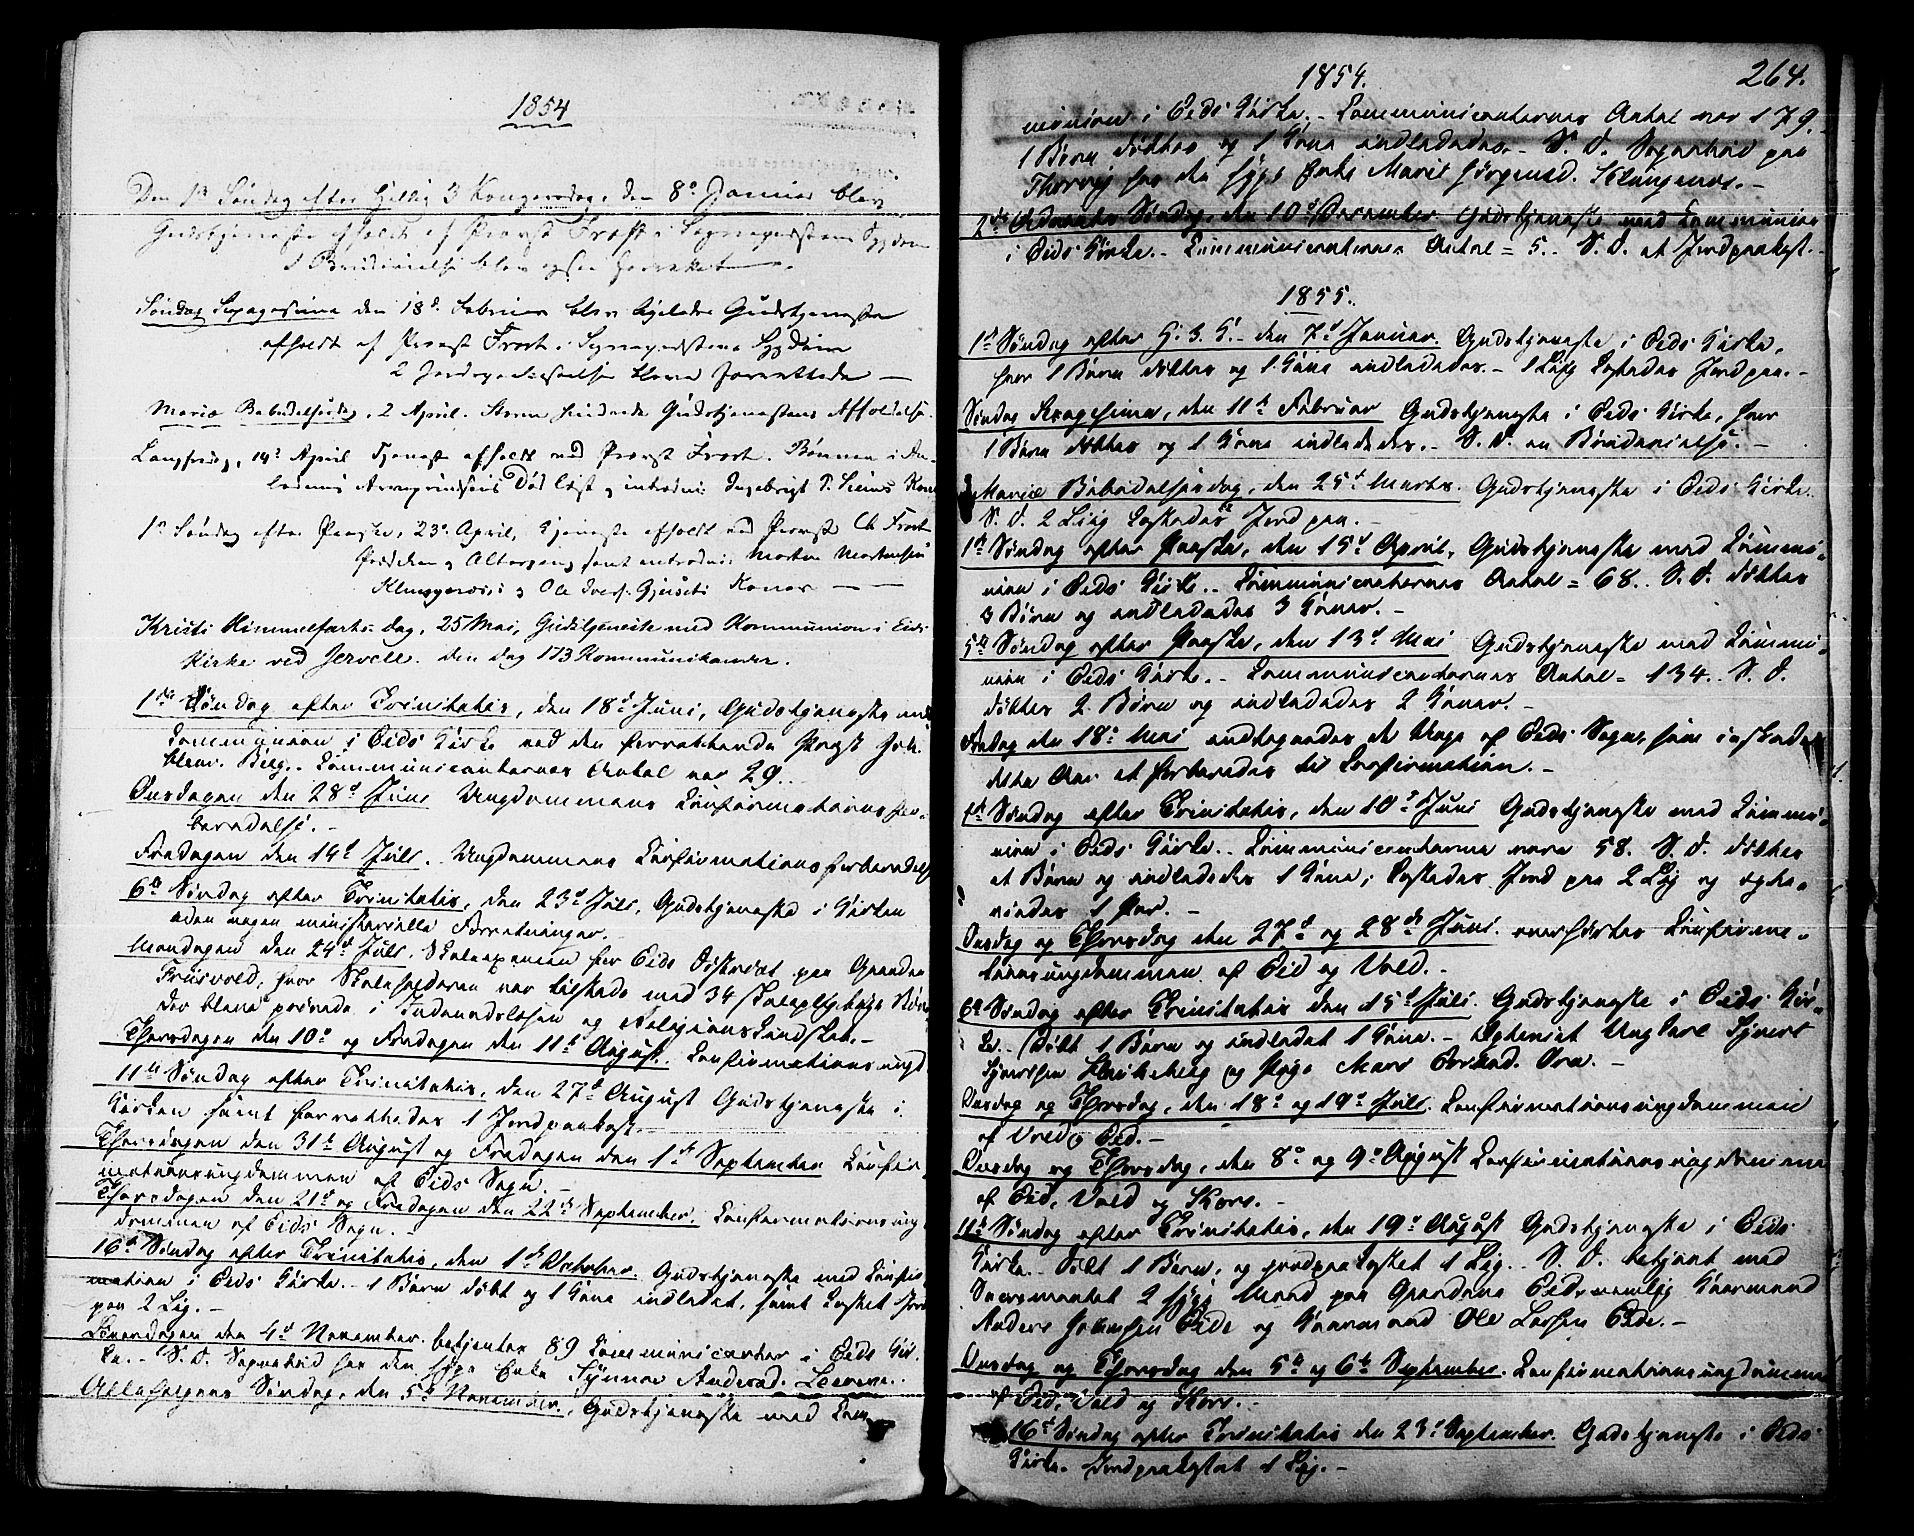 1854
Den 1ste Søndag efter Hellig 3 Kongersdag, den 8de Januar blev
Gudstjeneste afholdt af Provst Frost i Sognepræstens Sygdom
1 Brudevielse blev ogsaa forrettet
Søndag Sexagesima den 18de Februar blev ligeledes Gudstjeneste
afholdt af Provst Frost i Sognepræstens Sygdom
2 Jordpaakastelser bleve forrettede —
Mariæ Bebudelsesdag, 2 April. Storm hindrede Gudstjenestens Afholdelse.
Langfredag, 14de April Tjeneste afholdt ved Provst Frost. Bønnen i An-
ledning Arveprindsens Død læst og introd: Ingebrigt P. Kone
1ste Søndag efter Paaske, 23de April, Tjeneste afholdt ved Provst Ch Frost
Prædiken og Altergang samt introd: Morten Mortensen
Klungenæs: og Ole Iversen Gjusets Koner —
Kristi Himmelfarts-dag, 25 Mai, Gudstjeneste med Kommunion i Eids
Kirke ved Jervell. den dag 173 Kommunikanter.
1ste Søndag efter Trinitatis, den 18de Juni, Gudstjeneste med
Communion i Eids Kirke ved den forrettende Præst Joh.
Berg. Communicanternes Antal var 29.
Onsdagen den 28de Juni Ungdommens Confirmationsfor-
beredelse. —
Fredagen den 14de Juli. Ungdommens Confirmationsforberedelse
6te Søndag efter Trinitatis, den 23de Juli, Gudstjeneste i Kirken
uden nogen ministerielle Forretninger.
Mandagen den 24de Juli. Skoleexamen for Eids District paa Gaarden
Frisvold, hvor Skoleholderen var tilstede med 34 skolepligtige Børn,
der bleve prøvede i Indenadslæsen og Religionskundskab. —
Thorsdagen den 10de og Fredagen den 11te August. Confirmationsungd
11te Søndag efter Trinitatis, den 27de August Gudstjeneste i
Kirken samt forrettedes 1 Jordpaakast.
Thorsdagen den 31te August og Fredagen den 1ste September Confir-
mationsungdommen af Eids Sogn.
Thorsdagen den 21de og Fredagen den 22de September. Confirmationsung
dommen af Eids Sogn. —
16de Søndag efter Trinitatis, den 1ste October. Gudstjeneste med Confir-
mation i Eids Kirke. 1 Barn døbt og 1 Kone indledet, samt kastet Jord
paa 2 Lig. —
Løverdagen den 4de November. betjentes 89 Communicanter i Eids Kir-
ke. — S. D. Sognebud hos den syge Enke Synnøv Andersd.
Allehelgens Søndag, den 5te November, Gudstjeneste med Com
1854. 264.
munion i Eids Kirke. — Communicanternes Antal var 179.
1 Barn døbtes og 1 Kone indledes. — S. D. Sognebud paa
Thorvig hos den syge Enke Marit Jørgensd. Klungenæs. —
2den Advents Søndag, den 10de December Gudstjeneste med Communion
i Eids Kirke. — Communicanternes Antal = 5. — S. D. et Jordpaakast. —
1855.
1ste Søndag efter H. 3 K. — den 7de Januar. Gudstjeneste i Eids Kirke,
hvor 1 Barn døbtes og 1 Kone indledes. — 1 Lig kastedes Jord paa. —
Søndag Sexagesima, den 11te Februar Gudstjeneste i Eids Kirke, hvor
1 Barn døbtes og 1 Kone indledes. — S. D. en Brudevielse. —
Mariæ Bebudelsesdag, den 25de Marts. Gudstjeneste i Eids Kirke.
S. D. 2 Liig kastedes Jord paa. —
1ste Søndag efter Paaske, den 15de April, Gudstjeneste med Commu-
nion i Eids Kirke. Communicanternes Antal = 68. S. D. døbtes
3 Børn og indledes 3 Koner. —
5te Søndag efter Paaske, den 13de Mai Gudstjeneste med Commu-
nion i Eids Kirke. — Communicanternes Antal = 134. S. D.
døbtes 2 Børn og indledes 2 Koner. —
Fredag den 18de Mai antegnedes de Unge af Eids Sogn, som
dette Aar at forberedes til Confirmation. —
1ste Søndag efter Trinitatis, den 10de Juni Gudstjeneste med Commu-
nion i Eids Kirke. Communicanterne vare 58. S. D. døbtes
et Barn og indledes 1 Kone, kastedes Jord paa 2 Lig og ægte-
viedes 1 Par. —
Onsdag og Thorsdag den 27de og 28de Juni. overhørtes Confirma-
tionsungdommen af Eid og Vold. —
6te Søndag efter Trinitatis den 15de Juli Gudstjeneste i Eids Kir-
ke. Døbt 1 Barn og indledet 1 Kone. — Ægteviet Ungkarl Syvert
Syvertsen og Pige Mari
Onsdag og Thorsdag, den 18de og 19de Juli. Confirmationsungdommen
af Vold og Eid. —
Onsdag og Thorsdag, den 8de og 9de August Confirmationsungdommen
af Eid, Vold og Kors. —
11te Søndag efter Trinitatis, den 19de August Gudstjeneste i Eids
Kirke. Døbt 1 Barn, og jordpaakastet 1 Lig. S. D. betjent med
Sacramentet 2 syge Mænd paa Gaardene Eide nemlig Kaarmand
Anders Johansen Eide og Kaarmand Ole Larsen Eide. —
Onsdag og Thorsdag den 5te og 6te September. Confirmationsungdommen
af Eid, Vold og Kors. —
16de Søndag efter Trinitatis den 23de September. Gudstjeneste i Eids
Kirke. Jordpaakastet 1 Lig. —